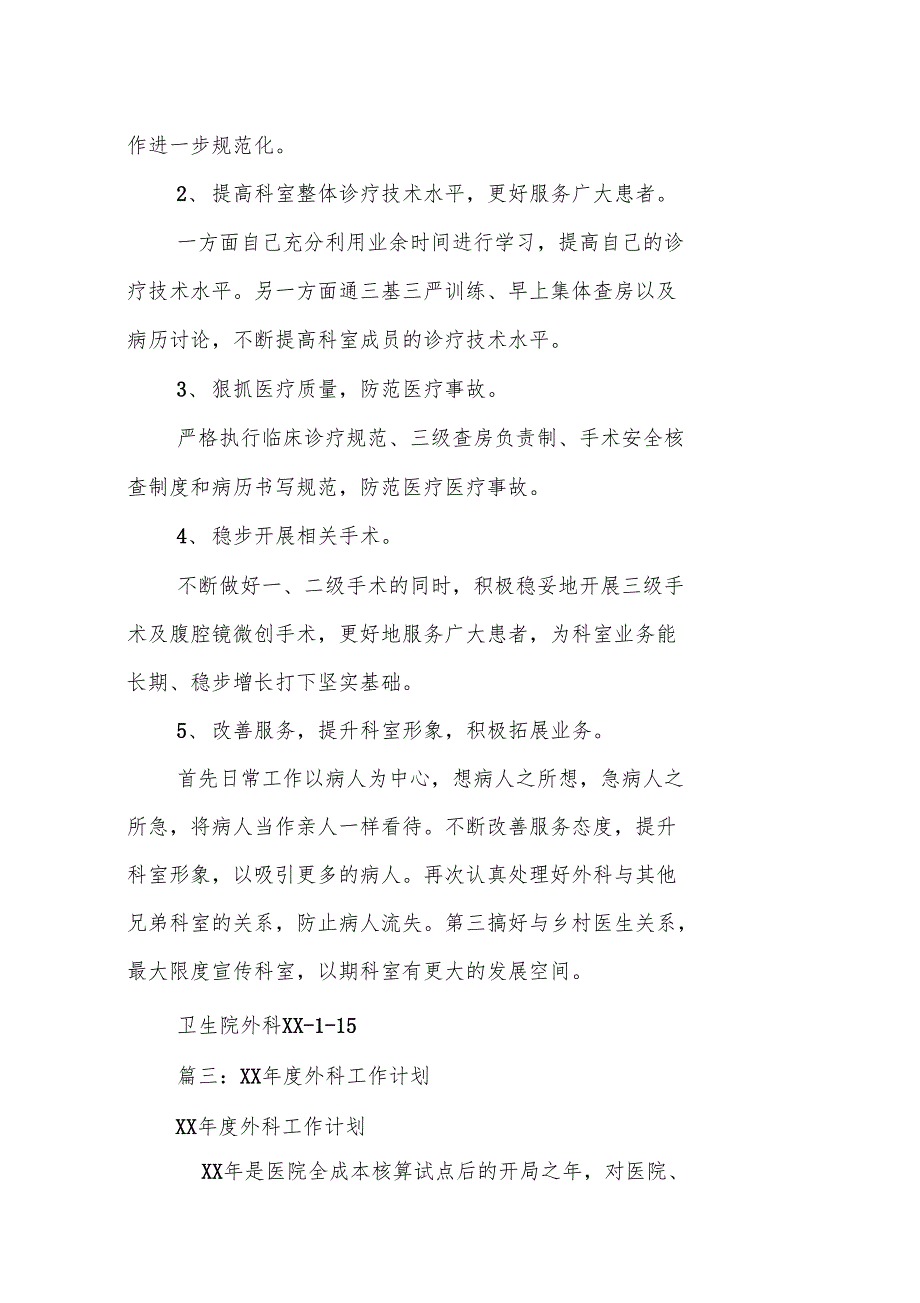 作进一步规范化。
2、 提高科室整体诊疗技术水平，更好服务广大患者。
一方面自己充分利用业余时间进行学习，提高自己的诊
疗技术水平。另一方面通三基三严训练、早上集体查房以及
病历讨论，不断提高科室成员的诊疗技术水平。
3、 狠抓医疗质量，防范医疗事故。
严格执行临床诊疗规范、三级查房负责制、手术安全核
查制度和病历书写规范，防范医疗医疗事故。
4、 稳步开展相关手术。
不断做好一、二级手术的同时，积极稳妥地开展三级手
术及腹腔镜微创手术，更好地服务广大患者，为科室业务能
长期、稳步增长打下坚实基础。
5、 改善服务，提升科室形象，积极拓展业务。
首先日常工作以病人为中心，想病人之所想，急病人之
所急，将病人当作亲人一样看待。不断改善服务态度，提升
科室形象，以吸引更多的病人。再次认真处理好外科与其他
兄弟科室的关系，防止病人流失。第三搞好与乡村医生关系，
最大限度宣传科室，以期科室有更大的发展空间。
卫生院外科XX-1-15
篇三：XX年度外科工作计划
XX年度外科工作计划
XX年是医院全成本核算试点后的开局之年，对医院、